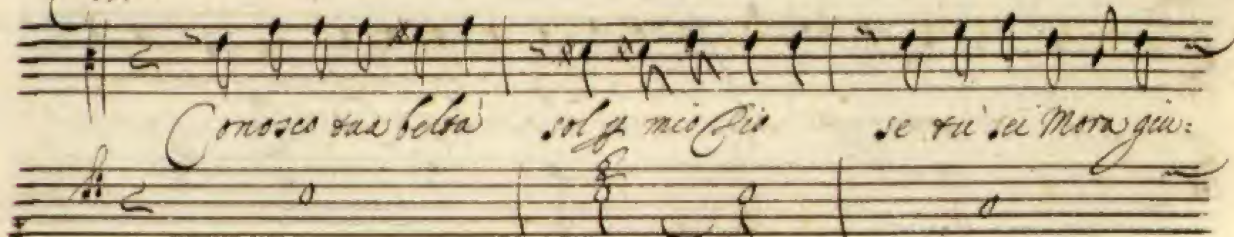 Conosco tua beltà sol ꝑ mio Dio se tù sei Mora giu: